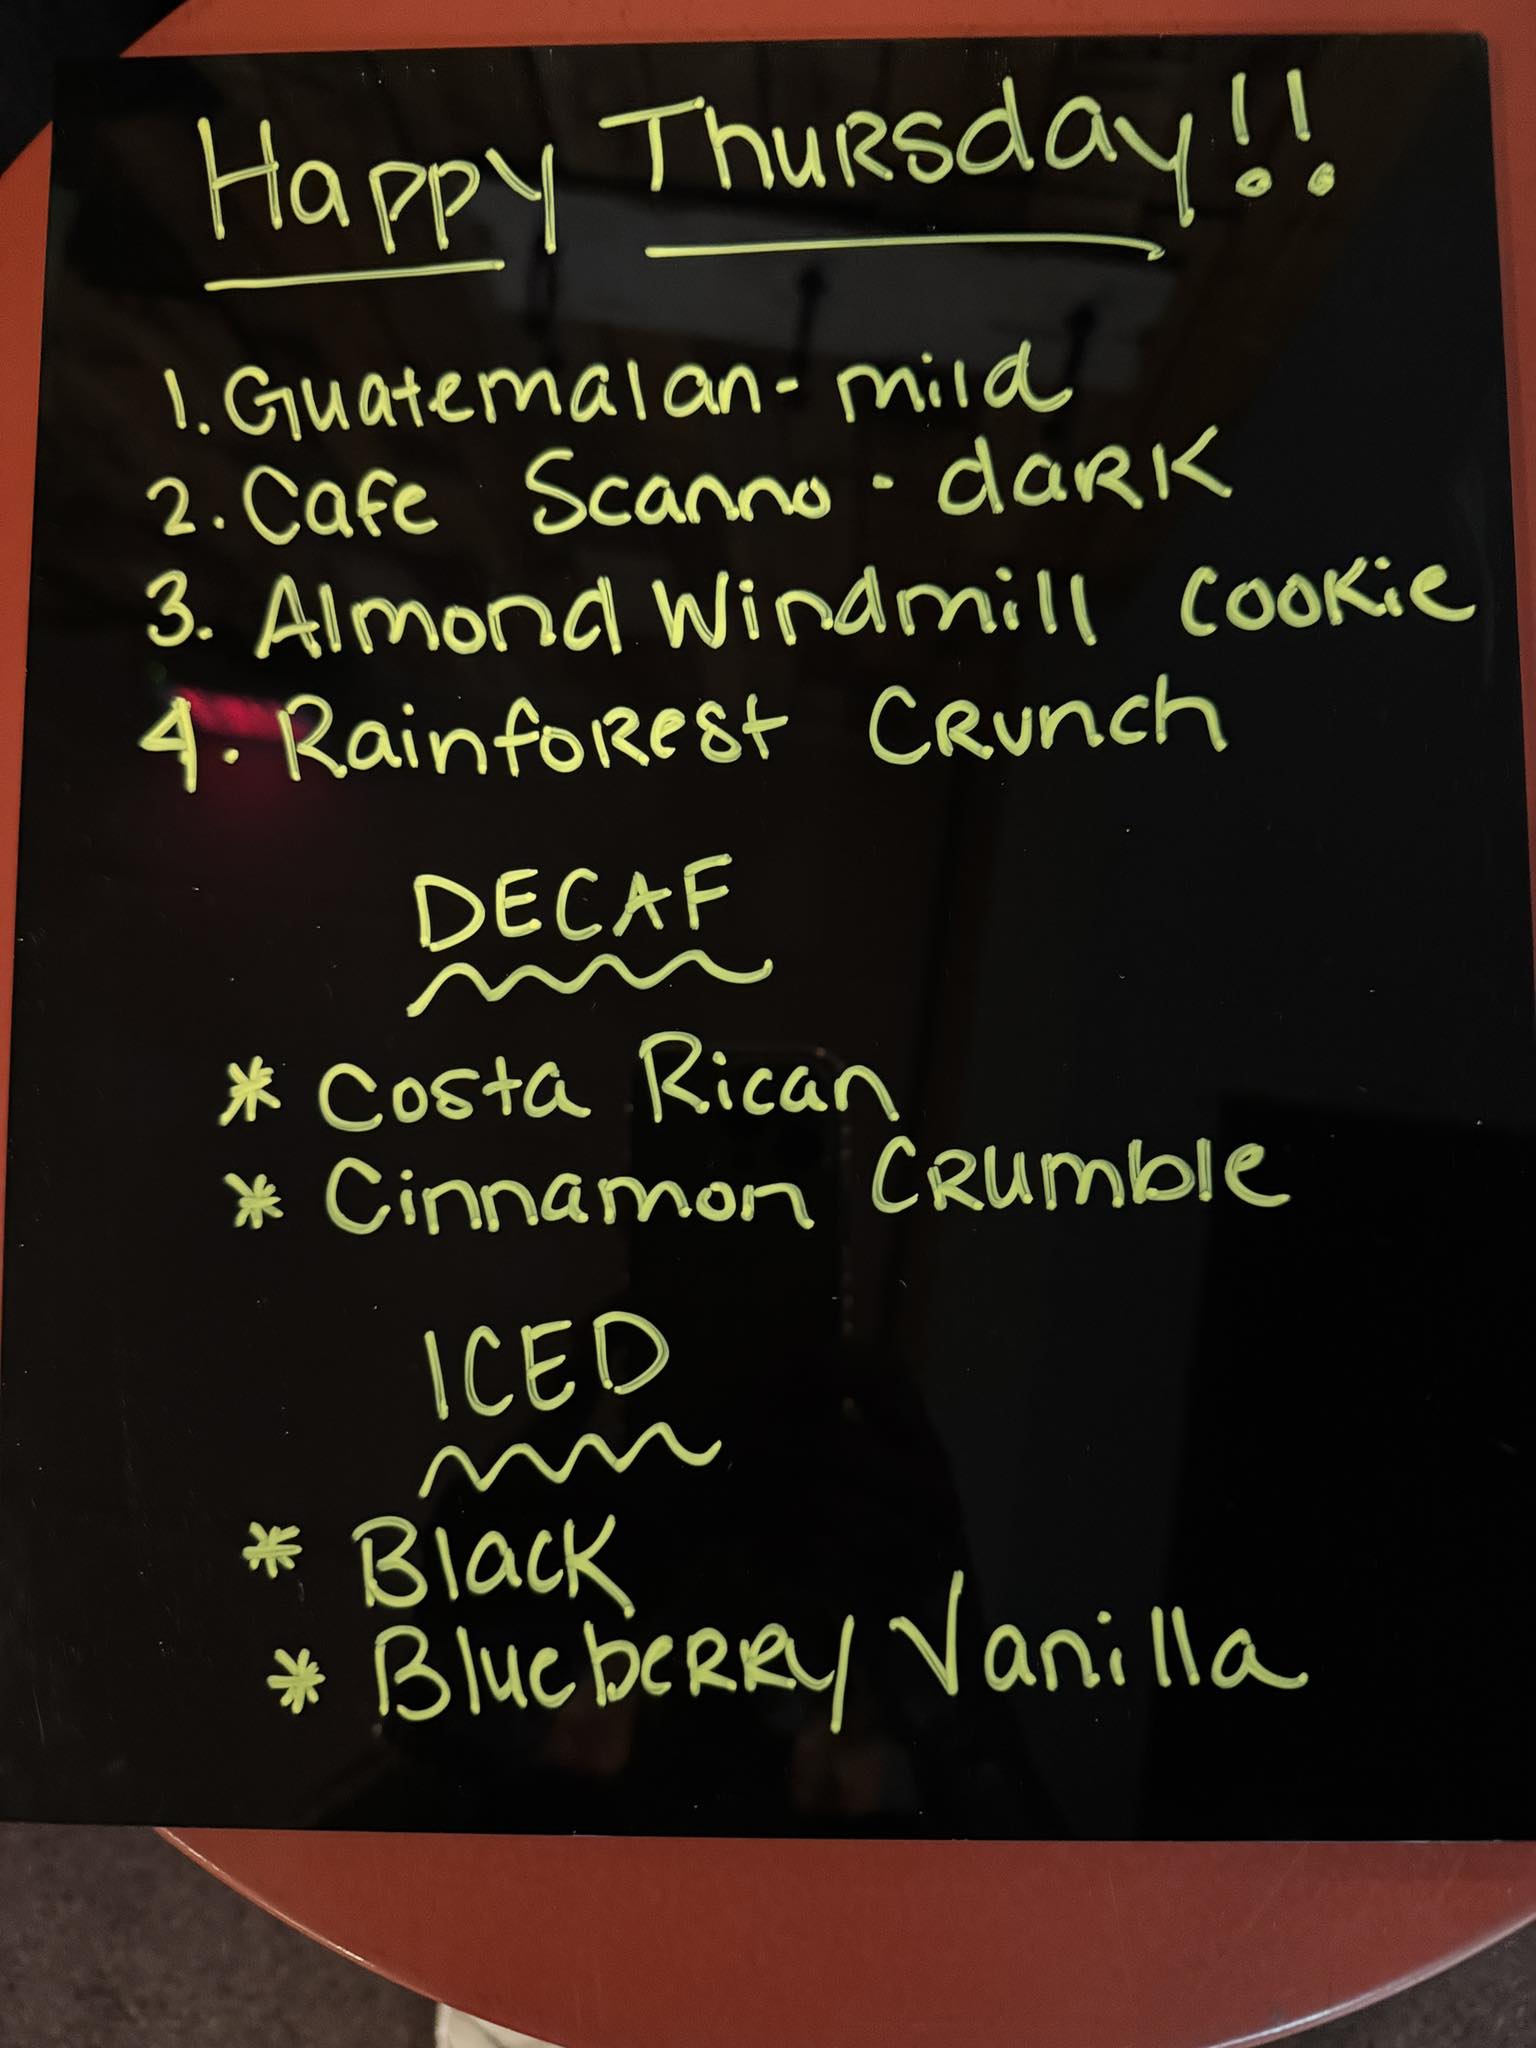 Happy Thursday!!
1. Guatemalan - mild
2. Cafe Scanno - dark
3. Almond Windmill Cookie
4. Rainforest Crunch
DECAF
* Costa Rican
* Cinnamon Crumble
ICED
* Black
* Blueberry Vanilla